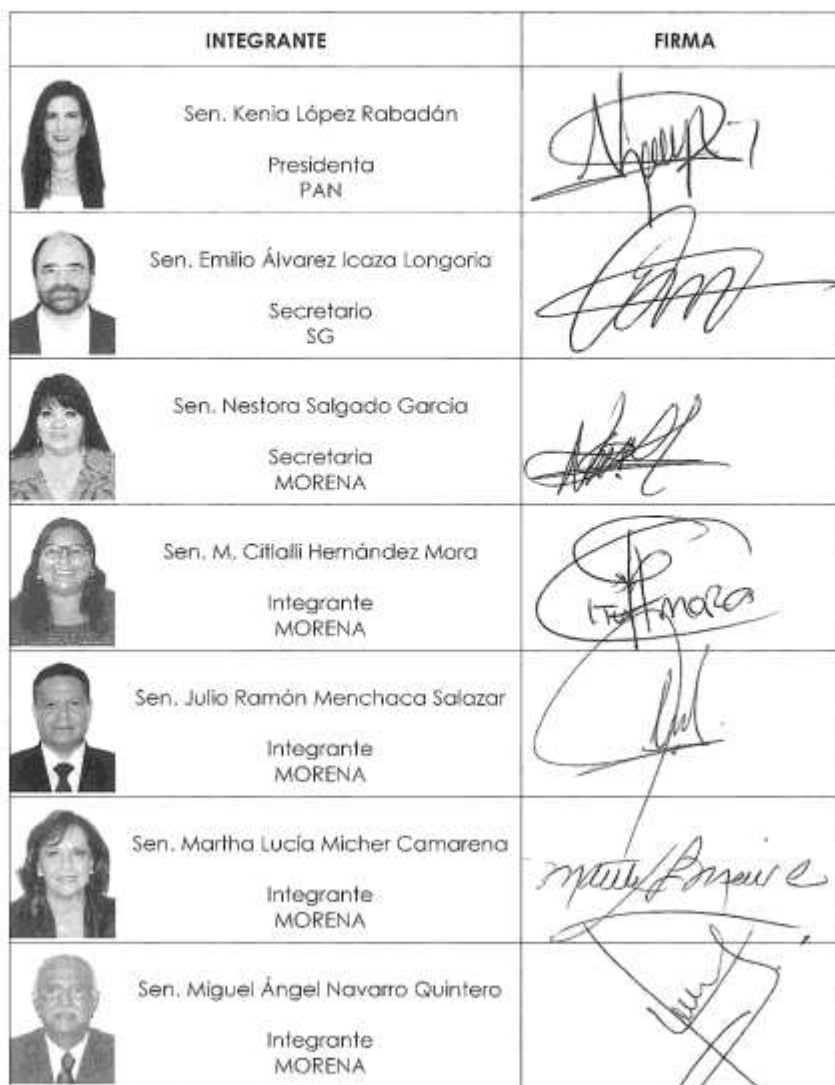 INTEGRANTE FIRMA
Sen. Kenia López Rabadán
Presidenta
PAN
Sen. Emilio Álvarez Icaza Longoria
Secretario
SG
Sen. Nestora Salgado García
Secretaria
MORENA
Sen. M. Citlalli Hernández Mora
Integrante
MORENA
Sen. Julio Ramón Menchaca Salazar
Integrante
MORENA
Sen. Martha Lucía Micher Camarena
Integrante
MORENA
Sen. Miguel Ángel Navarro Quintero
Integrante
MORENA